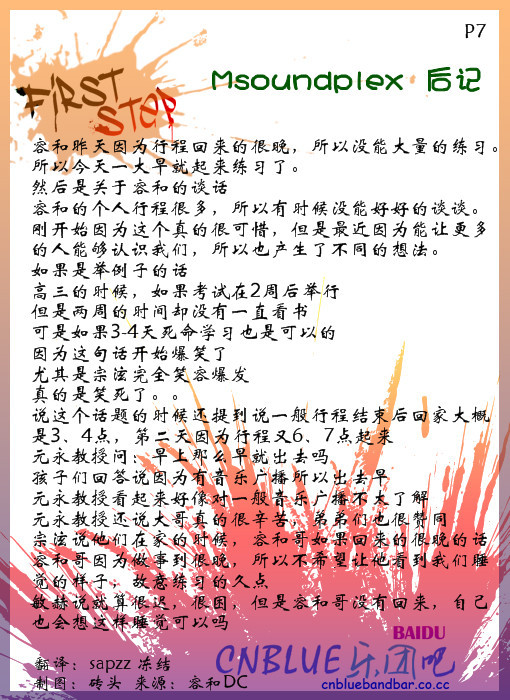 P7
FIRST STEP
Msoundplex 后记
容和昨天因为行程回来的很晚，所以没能大量的练习。
所以今天一大早就起来练习了。
然后是关于容和的谈话
容和的个人行程很多，所以有时候没能好好的谈谈。
刚开始因为这个真的很可惜，但是最近因为能让更多
的人能够认识我们，所以也产生了不同的想法。
如果是举例子的话
高三的时候，如果考试在2周后举行
但是两周的时间却没有一直看书
可是如果3-4天死命学习也是可以的
因为这句话开始爆笑了
尤其是宗泫完全笑容爆发
真的是笑死了。。
说这个话题的时候还提到说一般行程结束后回家大概
是3、4点，第二天因为行程又6、7点起来
元永教授问：早上那么早就出去吗
孩子们回答说因为有音乐广播所以出去早
元永教授看起来好像对一般音乐广播不太了解
元永教授还说大哥真的很辛苦，弟弟们也很赞同
宗泫说他们在家的时候，容和哥如果回来的很晚的话
容和哥因为做事到很晚，所以不希望让他看到我们睡
觉的样子，故意练习的久点
敏赫说就算很迟，很困，但是容和哥没有回来，自己
也会想这样睡觉可以吗
BAIDU
翻译：sapzz 冻结
CNBLUE乐团吧
制图：砖头 来源：容和DC
cnbluebandbar.co.cc